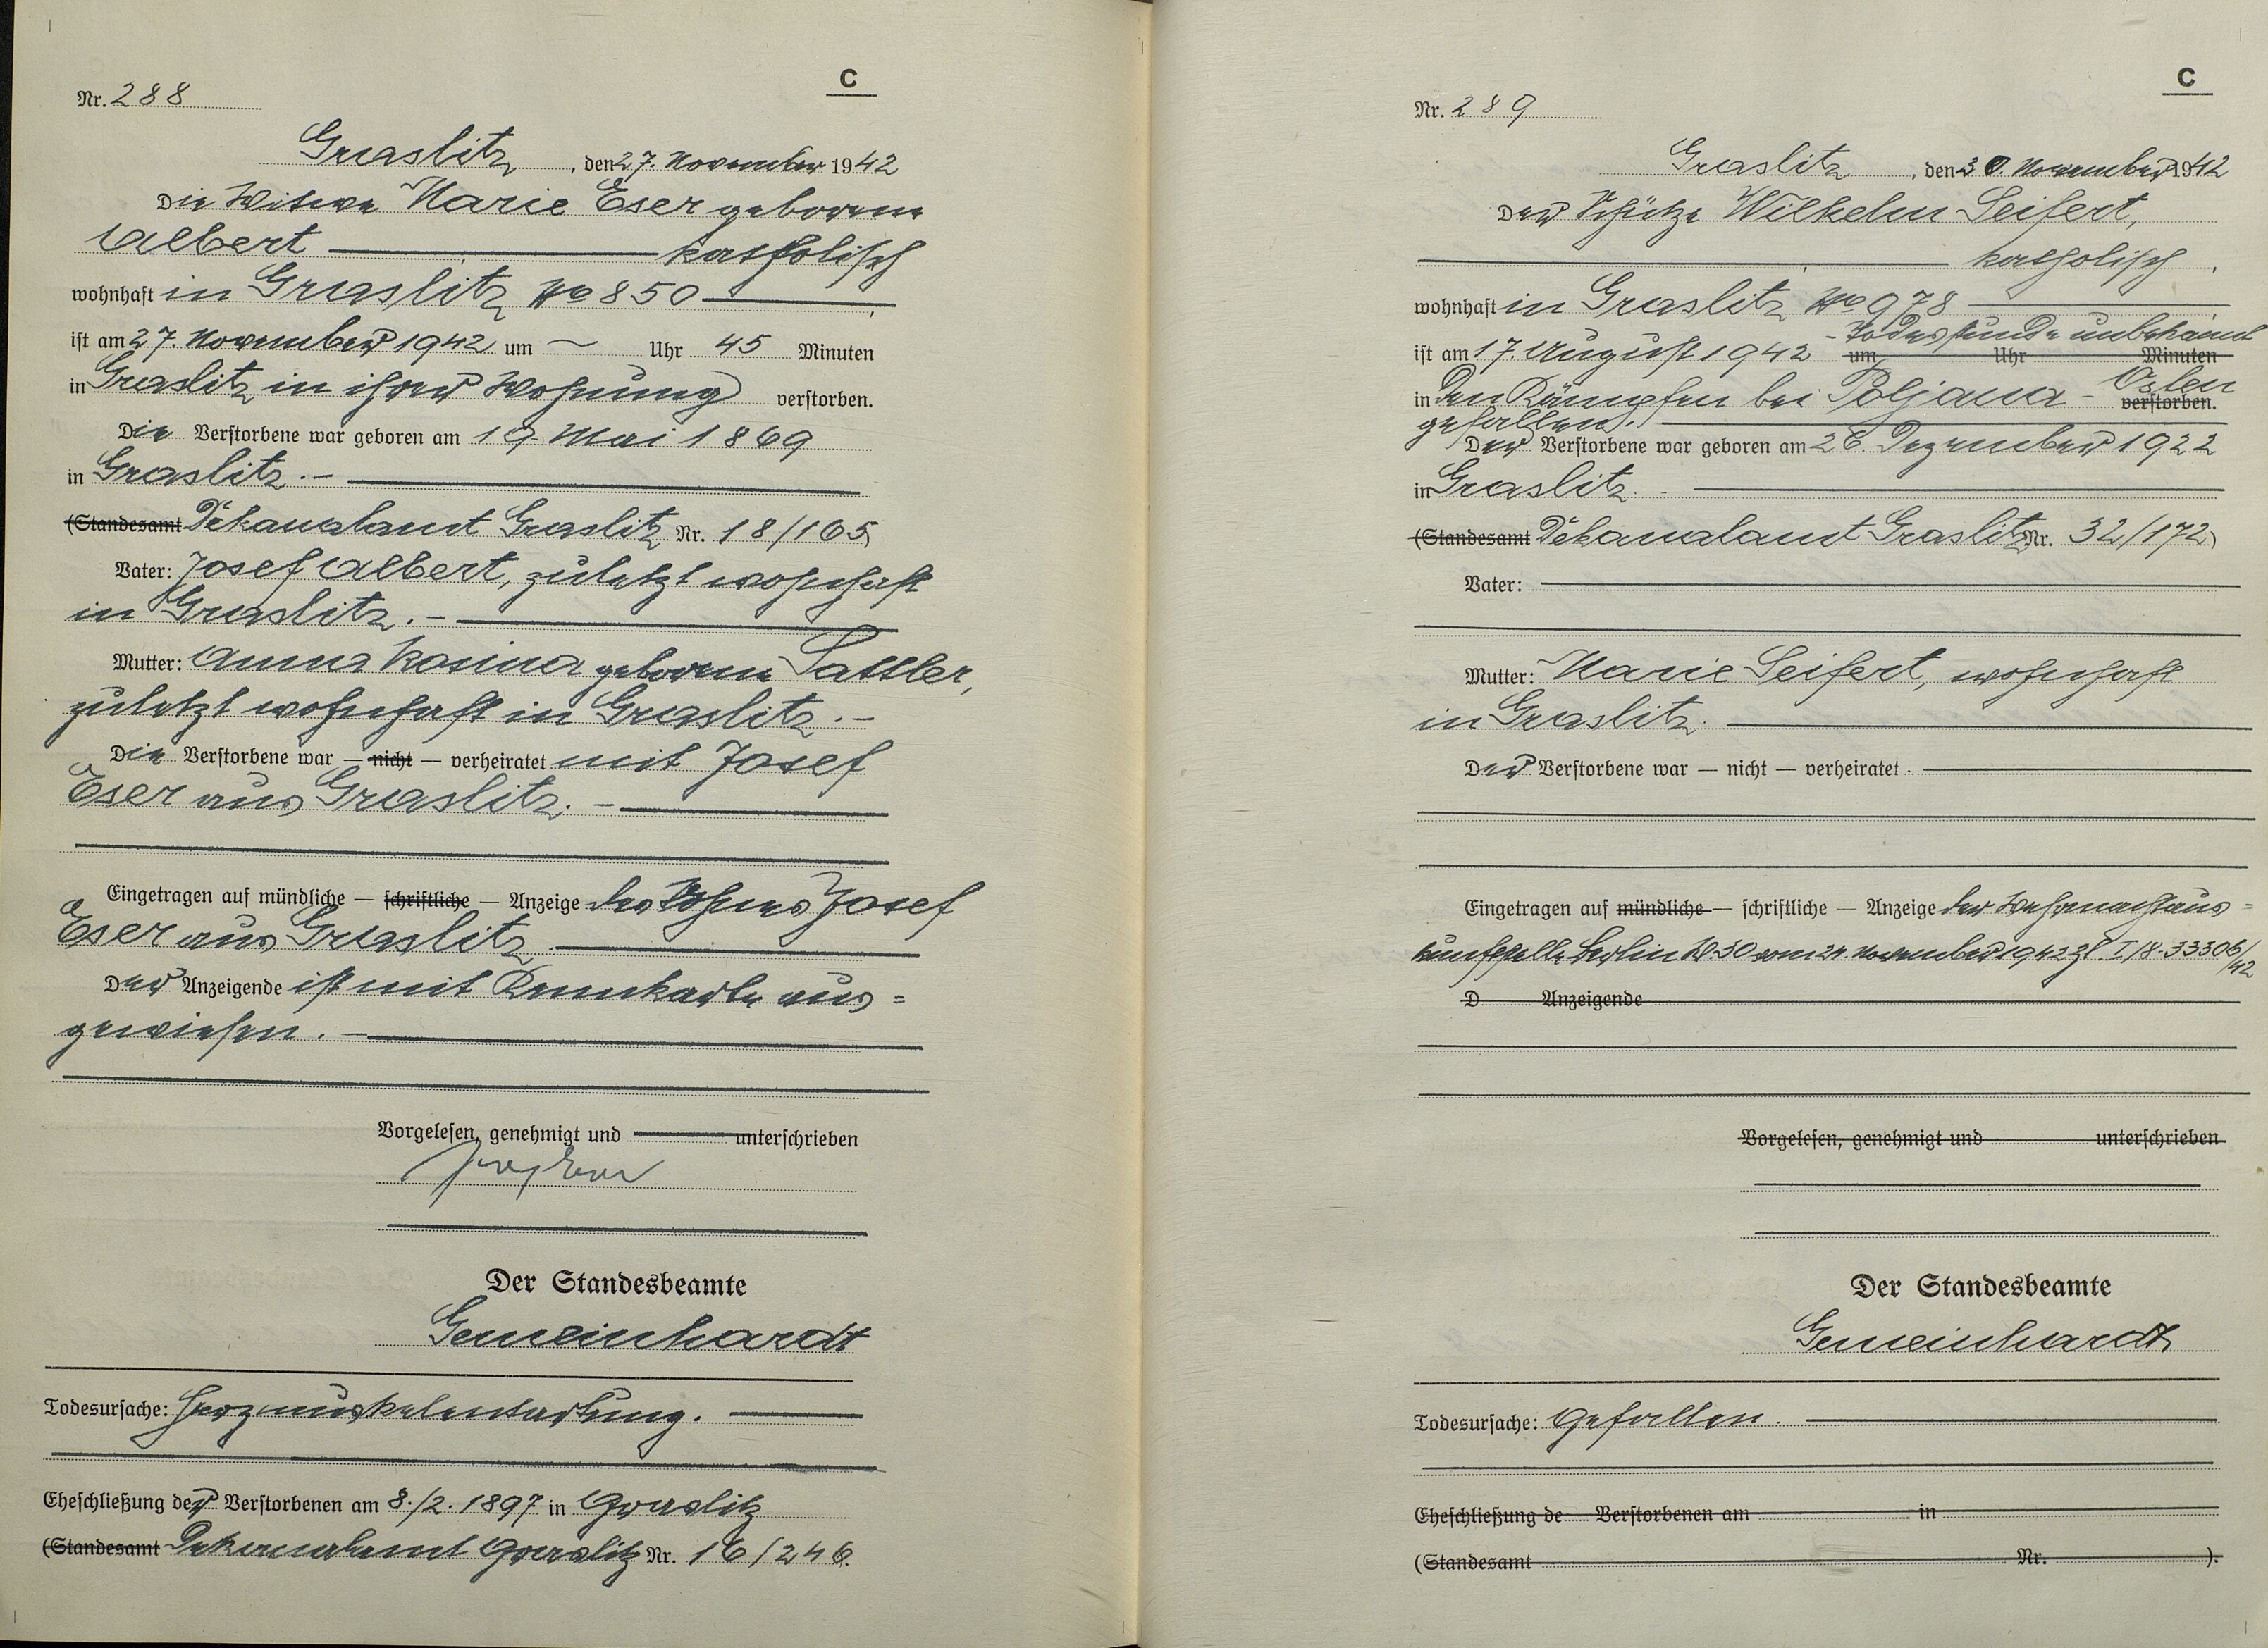 C
Nr. 288
Graslitz, den 27. November 1942
Die Witwe Marie Eser geborene
Albert katholisch
wohnhaft in Graslitz No 850
ist am 27. November 1942 um — Uhr 45 Minuten
in Graslitz in ihrer Wohnung verstorben.
Die Verstorbene war geboren am 19. Mai 1869
in Graslitz.-
(Standesamt Dekanalamt Graslitz Nr. 18/165)
Vater: Josef Albert, zuletzt wohnhaft
in Graslitz.-
Mutter: Anna Rosina geborene Sattler,
zuletzt wohnhaft in Graslitz.-
Die Verstorbene war — nicht — verheiratet mit Josef
Eser aus Graslitz.-
Eingetragen auf mündliche — schriftliche — Anzeige des Sohnes Josef
Eser aus Graslitz
Der Anzeigende ist mit Kennkarte aus=
gewiesen.-
Vorgelesen, genehmigt und unterschrieben
Der Standesbeamte
Gemeinhardt
Todesursache: Herzmuskelentartung.
Eheschließung der Verstorbenen am 8./2. 1897 in Graslitz
(Standesamt Dekanalamt Graslitz Nr. 16/246.
C
Nr. 289
Graslitz, den 30. November 1942
Der Schütze Wilhelm Seifert,
katholisch
wohnhaft in Graslitz No 978
- Todesstunde unbekannt
ist am 17. August 1942 um Uhr Minuten
in den Kämpfen bei Poljana - Osten verstorben.
gefallen.
Der Verstorbene war geboren am 26. Dezember 1922
in Graslitz.-
(Standesamt Dekanalamt Graslitz Nr. 32/172)
Vater:
Mutter: Marie Seifert, wohnhaft
in Graslitz.
Der Verstorbene war — nicht — verheiratet.
Eingetragen auf mündliche — schriftliche — Anzeige der Wehrmachtaus=
kunftstelle Berlin W.30 vom 24. November 1942 Zl. I/18-33306/42
D Anzeigende
Vorgelesen, genehmigt und unterschrieben
Der Standesbeamte
Gemeinhardt
Todesursache: Gefallen.
Eheschließung de Verstorbenen am in
(Standesamt Nr. ).